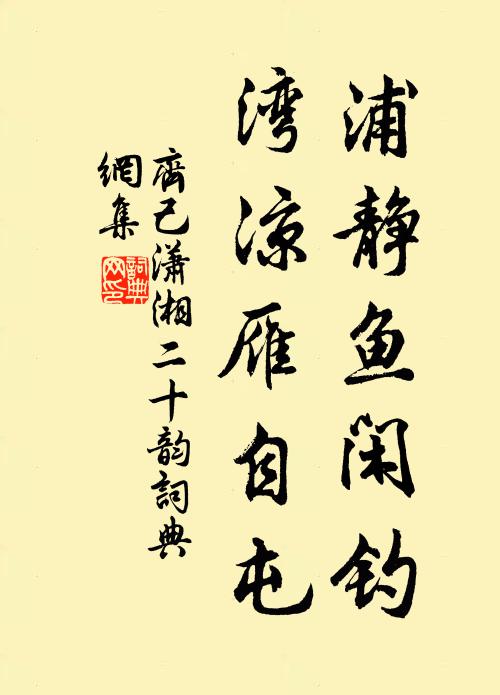 浦静鱼闲钓
湾凉雁自屯
齊己瀟湘二十韵詞典
網集
詞典
网印